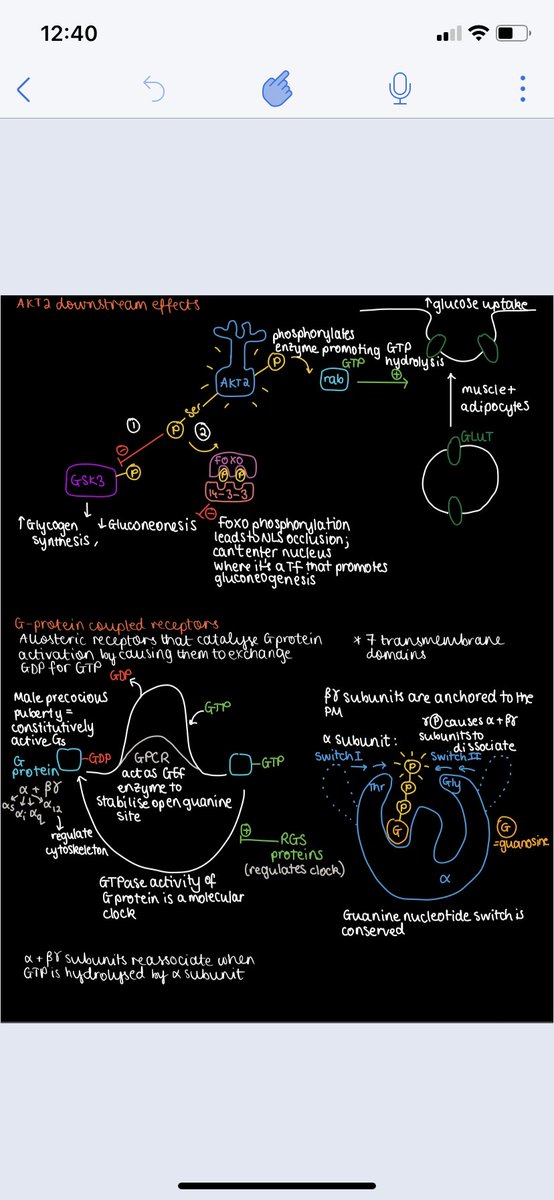 12:40
AKT2 downstream effects
↑glucose uptake
phosphorylates
enzyme promoting GTP
hydrolysis
GTP
P
rab
⊕
AKT2
muscle+
adipocytes
ser
①
P
②
GLUT
⊖
FOXO
P P
14-3-3
GSK3
P
↑Glycogen
synthesis,
↓Gluconeonesis
⊖
Foxo phosphorylation
leads to NLS occlusion;
can't enter nucleus
where it's a TF that promotes
gluconeogenesis
G-protein coupled receptors
Allosteric receptors that catalyse G protein
activation by causing them to exchange
GDP for GTP
* 7 transmembrane
domains
GDP
GTP
Male precocious
puberty =
constitutively
active Gs
G
protein
GDP
GPCR
act as GEF
enzyme to
stabilise open guanine
site
GTP
α + βγ
αs αi αq α12
regulate
cytoskeleton
⊕
RGS
proteins
(regulates clock)
GTPase activity of
G protein is a molecular
clock
βγ subunits are anchored to the
PM
γP causes α + βγ
subunits to
dissociate
α subunit:
Switch I
Switch II
Thr
P
P
P
Gly
G
α
G
=guanosine
Guanine nucleotide switch is
conserved
α + βγ subunits reassociate when
GTP is hydrolysed by α subunit